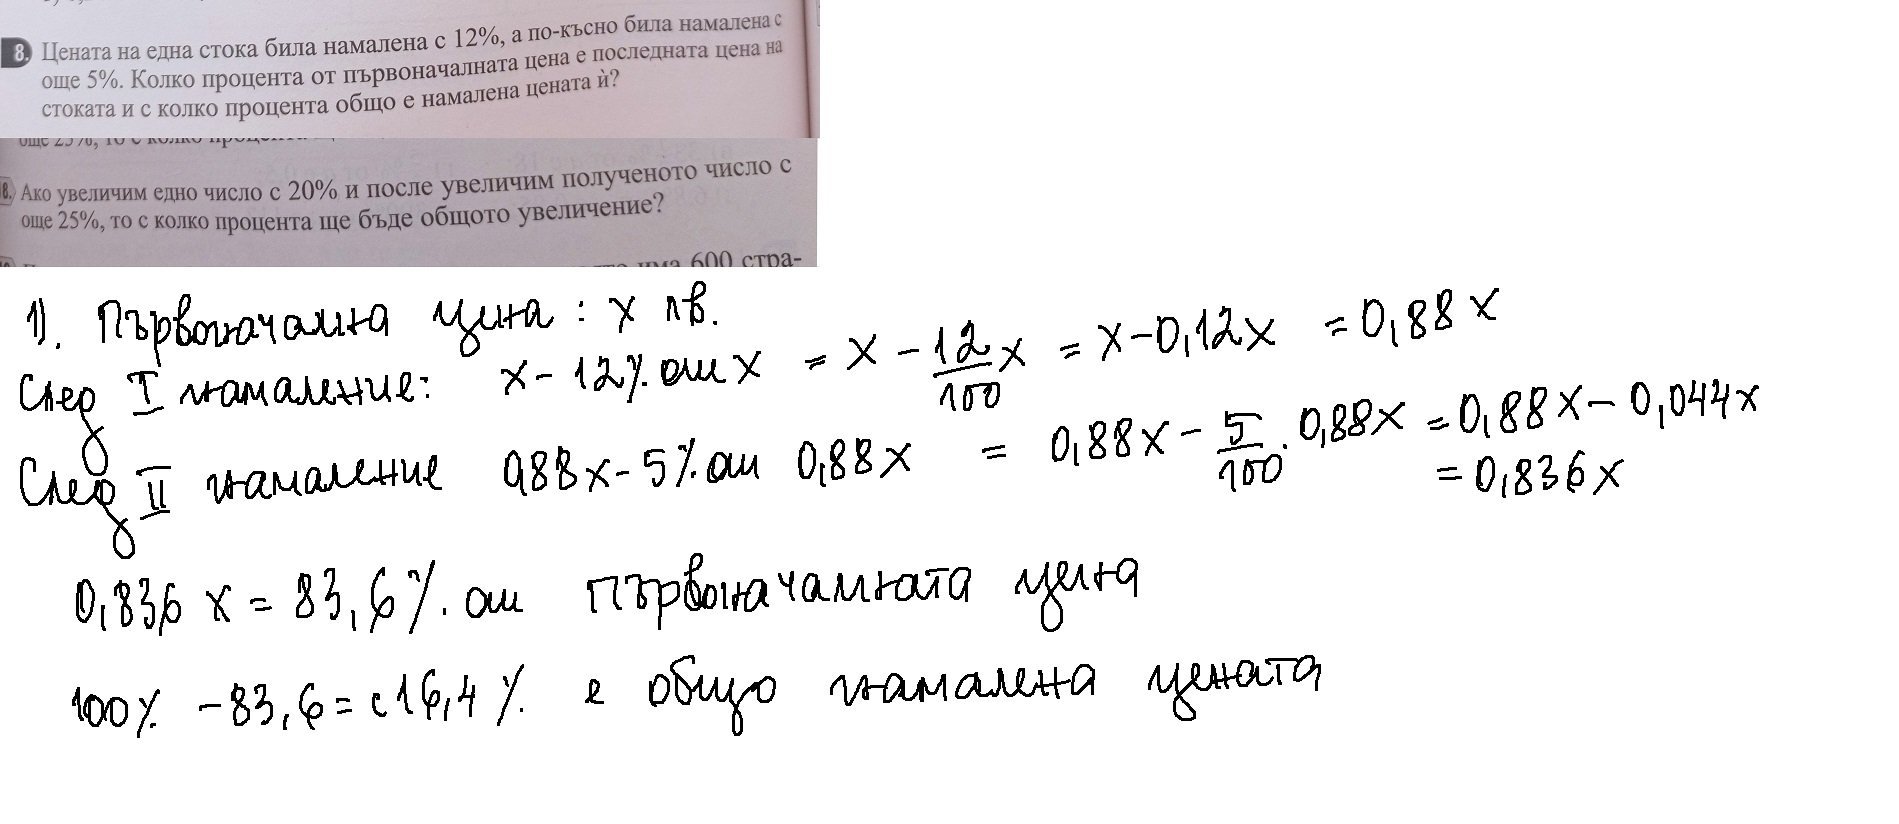 8. Цената на една стока била намалена с 12%, а по-късно била намалена с
още 5%. Колко процента от първоначалната цена е последната цена на
стоката и с колко процента общо е намалена цената ѝ?
още 25%, то с колко процента
18. Ако увеличим едно число с 20% и после увеличим полученото число с
още 25%, то с колко процента ще бъде общото увеличение?
има 600 стра-
1). Първоначална цена : x лв.
След I намаление: x - 12% от x = x - 12/100 x = x - 0,12x = 0,88x
След II намаление 0,88x - 5% от 0,88x = 0,88x - 5/100 . 0,88x = 0,88x - 0,044x
= 0,836x
0,836 x = 83,6% от първоначалната цена
100% - 83,6 = с 16,4% е общо намалена цената